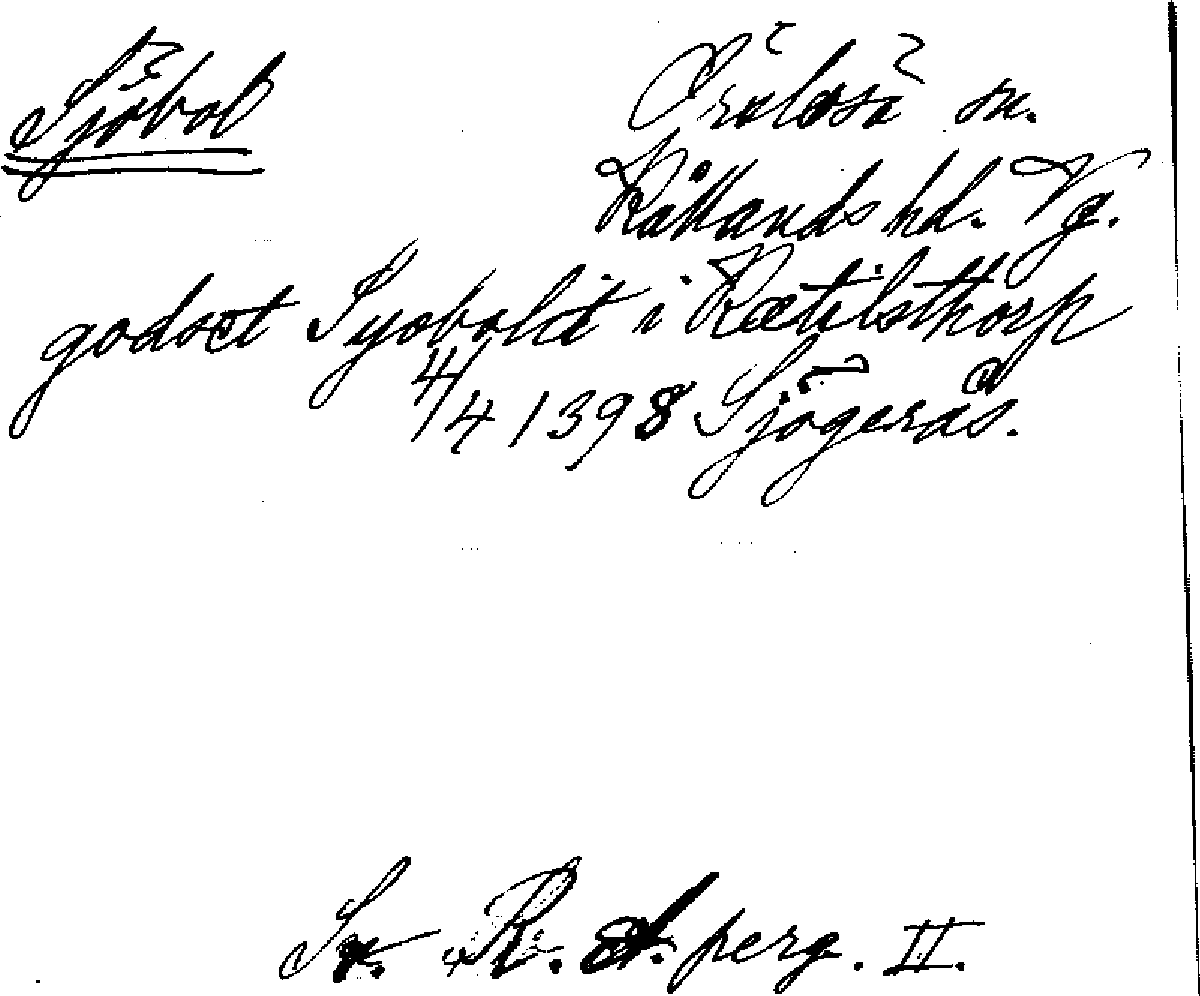 Sjöbol Örslösa sn.
Kållands hd. Vg.
godset Syoboled i Kætilsthorp
4/4 1398 Sjögerås.
Sv. R. A. perg. II.